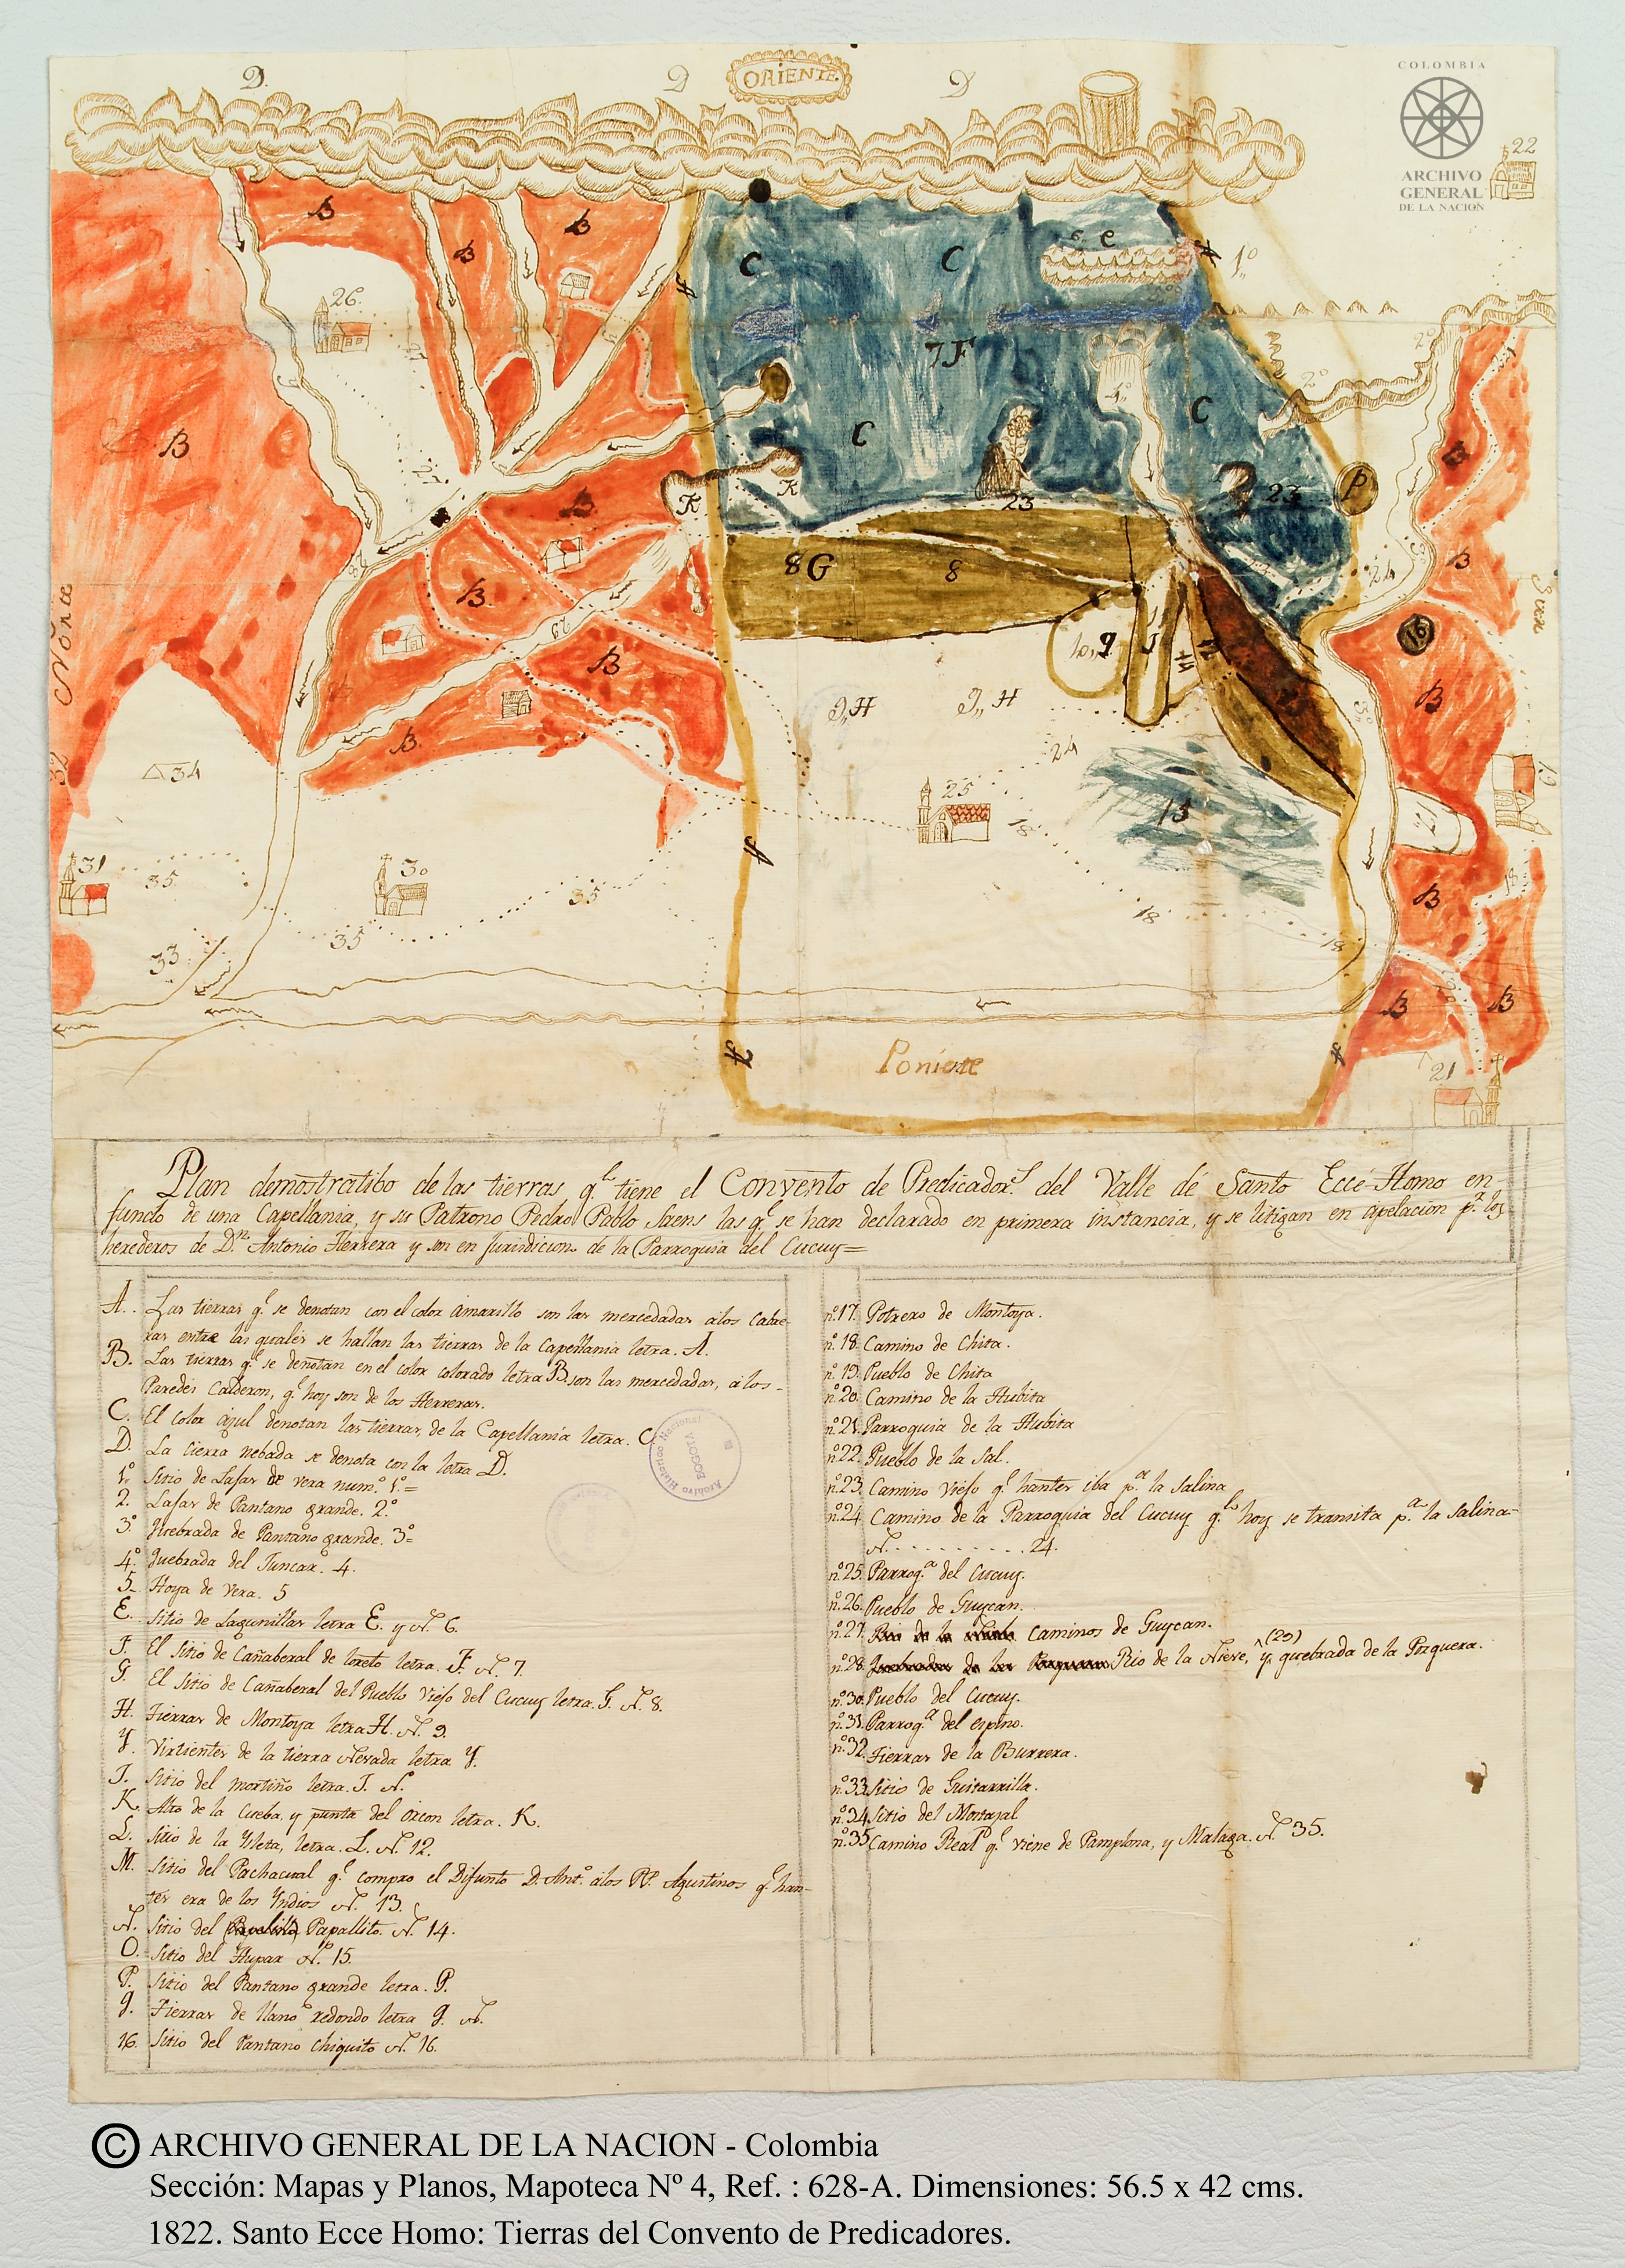 D.
D
ORIENTE.
D
COLOMBIA
ARCHIVO
GENERAL
DE LA NACION
22
B
B
B
C
C
e
A
A
1º
26.
2º
7F
2º
B
C
C
4º
B
27
K
K
23
23
P
B
28
8G
8
24
3º
B
B
Norte
29
B
10,, g
J
16
B
9,,H
9,,H
3º
B.
24
32
34
25
13
19
17
18
31
35
30
35
A
B
18
18
18
35
33
B
20
B
A
A
Poniente
21
Plan demostratibo de las tierras q.e tiene el Convento de Predicador.s del Valle de Santo Ecce-Homo en
functo de una Capellania, y su Patrono Pedro Pablo Saens las q.e se han declarado en primera instancia, y se litigan en apelacion p.r los
herederos de D.n Antonio Herrera y son en Jurisdicion de la Parroquia del Cucuy=
A. . Las tierras q.e se denotan con el color amarillo son las mercedadas alos Cabre-
ras entre las quales se hallan las tierras de la Capellania letra. A.
B. Las tierras q.e se denotan en el color colorado letra B. son las mercedadas, a los-
Paredes Calderon, q.e hoy son de los Herreras.
C. El color azul denotan las tierras de la Capellania letra. C
D. La cierra nebada se denota con la letra D.
1º Sitio de Lajas de vera num.º 1.º=
2. Lajas de Pantano grande. 2.º
3º Quebrada de Pantano grande. 3º=
4º Quebrada del Tuncar. 4.
5- Hoya de vera. 5
E. Sitio de Lagunillas letra E. y N. 6.
F. El Sitio de Cañaberal de loreto letra. F. N. 7.
G. El Sitio de Cañaberal del Pueblo viejo del Cucuy letra. G. N. 8.
H. Tierras de Montoya letra H. N. 9.
Y. Virtientes de la tierra Nevada letra Y.
J. Sitio del mortiño letra. J. N.
K. Alto de la Cueba, y punta del Orcon letra. K.
L. Sitio de la Ysleta, letra. L. N. 12.
M. Sitio del Pachacual q.e compro el Difunto D. Ant.º alos PP. Agustinos q.e han-
tes era de los Yndios N. 13.
N. Sitio del Papallito. N. 14.
O. Sitio del Hupar N. 15.
P. Sitio del Pantano grande letra. P.
g. Tierras de llano redondo letra g. N.
16. Sitio del Pantano chiquito N. 16.
n.º17. Potrero de Montoya.
n.º18. Camino de Chita.
n.º19. Pueblo de Chita
n.º20. Camino de la Hubita
n.º21. Parroquia de la Hubita
n.º22. Pueblo de la Sal.
n.º23. Camino viejo q.e hantes iba p.a la Salina
n.º24. Camino de la Parroquia del Cucuy q.e hoy se transita p.a la Salina-
N. . . . . . . . . . . 24.
n.º25. Parroq.a del Cucuy.
n.º26. Pueblo de Guycan.
n.º27. Caminos de Guycan.
n.º28. Rio de la Nieve, y (29) quebrada de la Pozquera.
n.º30. Pueblo del Cucuy.
n.º31. Parroq.a del espino.
n.º32. Tierras de la Burrera.
n.º33. Sitio de Guitarrilla.
n.º34. Sitio del Mortajal
n.º35. Camino Real q.e viene de Pamplona, y Malaga. N. 35.
Archivo Historico Nacional
BOGOTA
© ARCHIVO GENERAL DE LA NACION - Colombia
Sección: Mapas y Planos, Mapoteca Nº 4, Ref. : 628-A. Dimensiones: 56.5 x 42 cms.
1822. Santo Ecce Homo: Tierras del Convento de Predicadores.